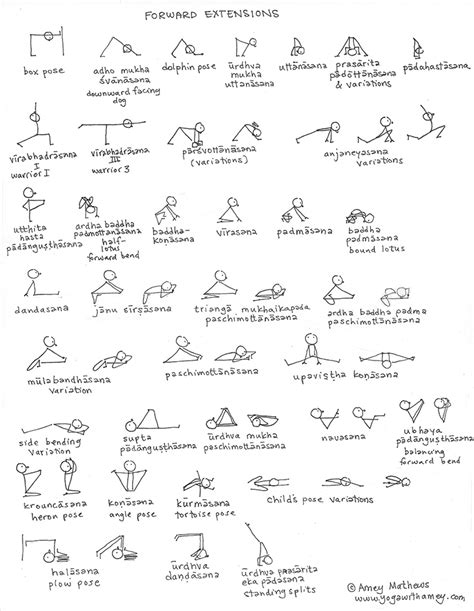 FORWARD EXTENSIONS
box pose
adho mukha
śvānāsana
downward facing
dog
dolphin pose
ūrdhva
mukha
uttānāsana
uttānāsana
prasārita
pādottānāsana
& variations
pādahastāsana
vīrabhadrāsana
I
warrior I
vīrabhadrāsana
III
warrior 3
pārśvottanāsana
(variations)
anjaneyasana
variations
utthita
hasta
pādānguṣṭhāsana
ardha baddha
padmottanāsana
half-
lotus
forward bend
baddha-
koṇāsana
vīrāsana
padmāsana
baddha
padmāsana
bound lotus
dandasana
jānu śīrṣāsana
triangā mukhaikapada
paschimottānāsana
ardha baddha padma
paschimottānāsana
mūlabandhāsana
variation
paschimottānāsana
upaviṣṭha koṇāsana
side bending
variation
supta
pādānguṣṭhāsana
ūrdhva mukha
paschimottānāsana
navasana
ubhaya
pādānguṣṭhāsana
balancing
forward bend
krouncāsana
heron pose
koṇāsana
angle pose
kūrmāsana
tortoise pose
child's pose variations
halāsana
plow pose
ūrdhva
daṇḍāsana
ūrdhva prasārita
eka pādāsana
standing splits
© Amey Mathews
www.yogawithamey.com